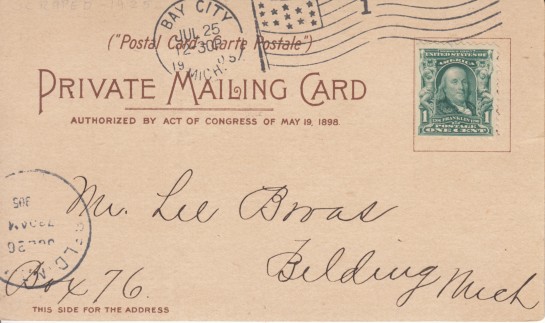 BAY CITY
JUL 25
2-30P
MICH.
1
("Postal Card - Carte Postale")
PRIVATE MAILING CARD
AUTHORIZED BY ACT OF CONGRESS OF MAY 19, 1898.
UNITED STATES OF
AMERICA
1 1
FRANKLIN
POSTAGE
ONE CENT
JUL 26
7 30AM
Mr. Lee
Box 76.
Belding Mich
THIS SIDE FOR THE ADDRESS